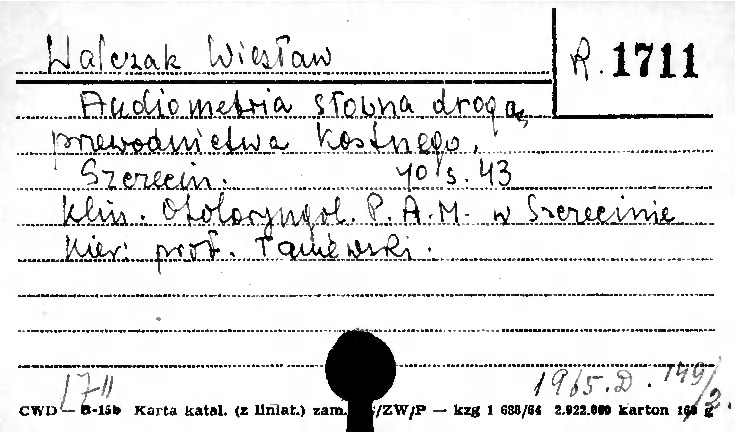 Walczak Wiesław
R. 1711
Audiometria słowna drogą
przewodnictwa kostnego.
Szczecin. s. 43
Klin. Otolaryngol. P. A. M. w Szczecinie
Kier: prof. Taniewski.
1711
1965. D. 149/2.
CWD — B-15b Karta katal. (z liniat.) zam. /ZW/P — kzg 1 688/64 2.922.000 karton 160 g